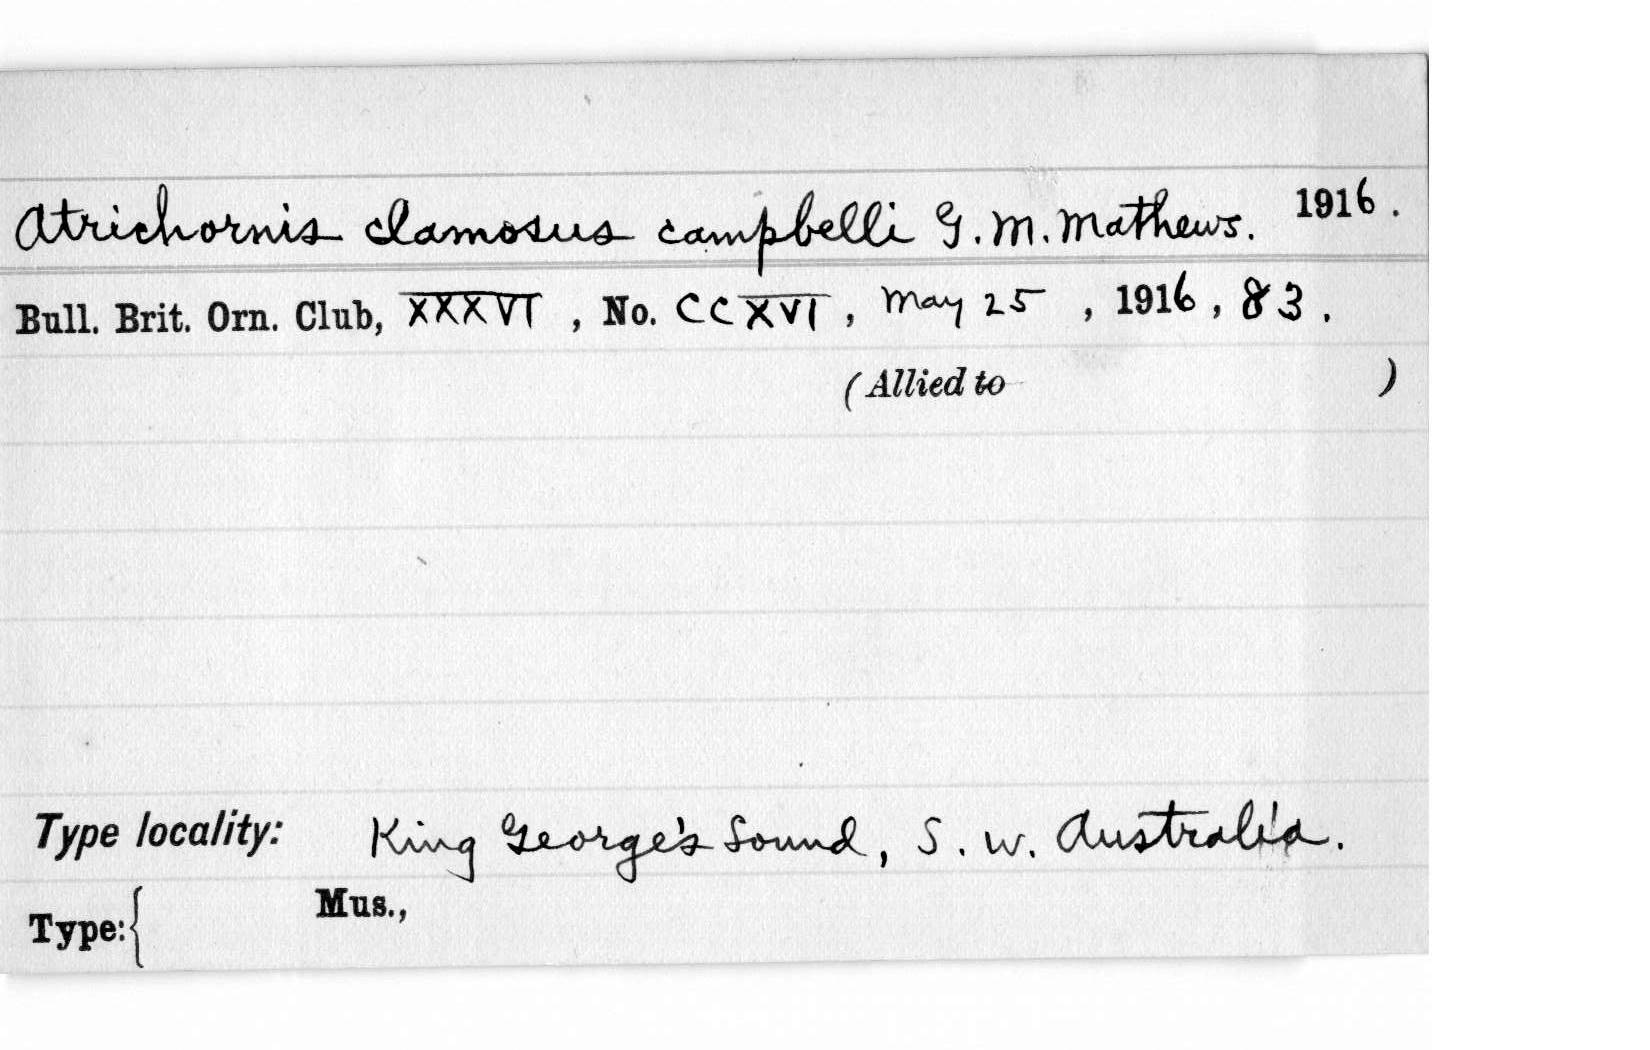 Atrichornis clamosus campbelli G. M. Mathews. 1916.
Bull. Brit. Orn. Club, XXXVI, No. CCXVI, May 25, 1916, 83.
(Allied to )
Type locality: King George's Sound, S. W. Australia.
Type:{ Mus.,